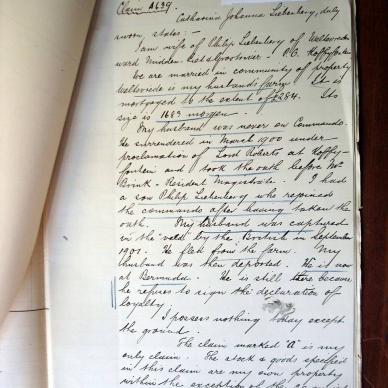 Claim A639.
Catharina Johanna Liebenberg, duly
sworn, states:—
I am wife of Philip Liebenberg of Weltevrede
ward Midden-Rietrivier. P.O. Koffyfontein
We are married in community of property
Weltevrede is my husband's farm. It is
mortgaged to the extent of £284. Its
size is 1683 morgen.
My husband was never on Commando.
He surrendered in March 1900 under
proclamation of Lord Roberts at Koffy-
fontein and took the oath before Mr
Brink. Resident Magistrate. I had
a son Philip Liebenberg who rejoined
the commandos after having taken the
oath. My husband was captured
in the veld by the British in September
1901. He fled from the farm. My
husband was then deported. He is now
at Bermuda. He is still there because
he refuses to sign the declaration of
loyalty.
I possess nothing today except
the ground.
The claim marked "A" is my
only claim. The stock & goods specified
in this claim are my own property
within the exception of the